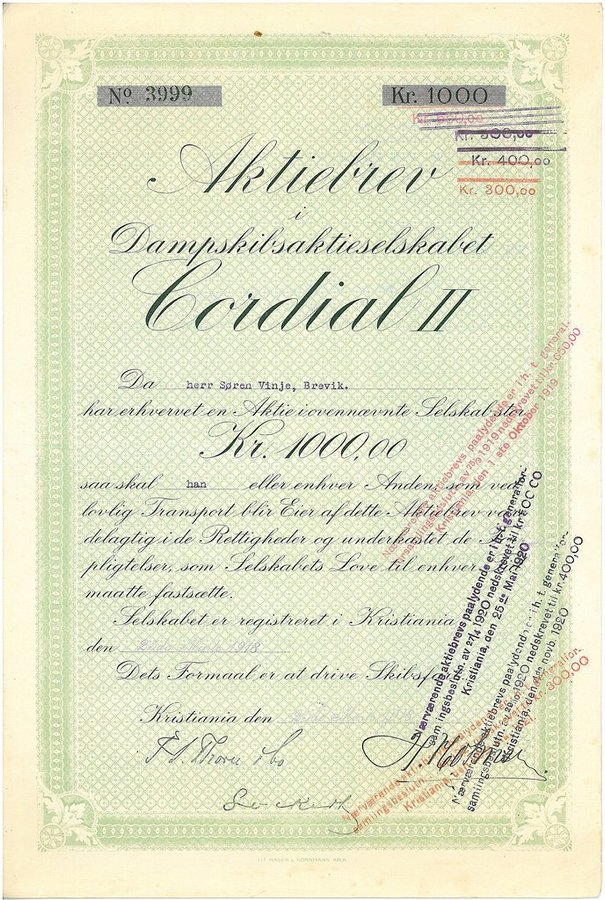 No 3999
Kr. 1000
Kr. 400,00
Kr. 300,00
Aktiebrev
i
Dampskibsaktieselskabet
Cordial II
Da herr Søren Vinje, Brevik.
har erhvervet en Aktie i ovennævnte Selskab stor
Kr. 1000,00
saa skal han eller enhver Anden, som ved
lovlig Transport blir Eier af dette Aktiebrev være
delagtig i de Rettigheder og underkastet de
pligtelser, som Selskabets Love til enhver
maatte fastsætte.
Selskabet er registreret i Kristiania
den 1918
Dets Formaal er at drive
Kristiania den
Nærværende aktiebrevs paalydende er i h. t. general-
1919 nedskrevet til kr. 650,00
Kristiania, den 1 ste Oktober 1919
Nærværende aktiebrevs paalydende er i h. t. generalfor-
samlingsbeslutn. av 27/4 1920 nedskrevet til kr.
Kristiania, den 25 de Mai 1920
Nærværende aktiebrevs paalydende er i h. t. generalfor-
samlingsbeslutn. 1920 nedskrevet til kr. 400,00
Kristiania, den novb. 1920
Nærværende
samlingsbeslutn. 300,00
Kristiania,